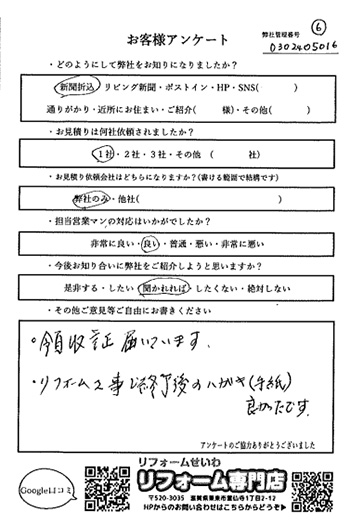 ⑥
弊社管理番号
D302405016
お客様アンケート
・どのようにして弊社をお知りになりましたか？
新聞折込・リビング新聞・ポストイン・HP・SNS(　　　)
通りがかり・近所にお住まい・ご紹介(　　　様)・その他(　　　)
・お見積りは何社依頼されましたか？
1社・2社・3社・その他（　　　社）
・お見積り依頼会社はどちらになりますか？(書ける範囲で結構です)
弊社のみ・他社(　　　)
・担当営業マンの対応はいかがでしたか？
非常に良い・良い・普通・悪い・非常に悪い
・今後お知り合いに弊社をご紹介しようと思いますか？
是非する・したい・聞かれれば・したくない・絶対しない
・その他ご意見等ご自由にお書きください
・領収証届いています。
・リフォーム工事終了後のハガキ(手紙)
良かったです。
アンケートのご協力ありがとうございました
Google口コミ
リフォームせいわ
リフォーム専門店
〒520-3035 滋賀県栗東市霊仙寺1丁目2-12
HPからのお問い合わせはこちらからどうぞ▶